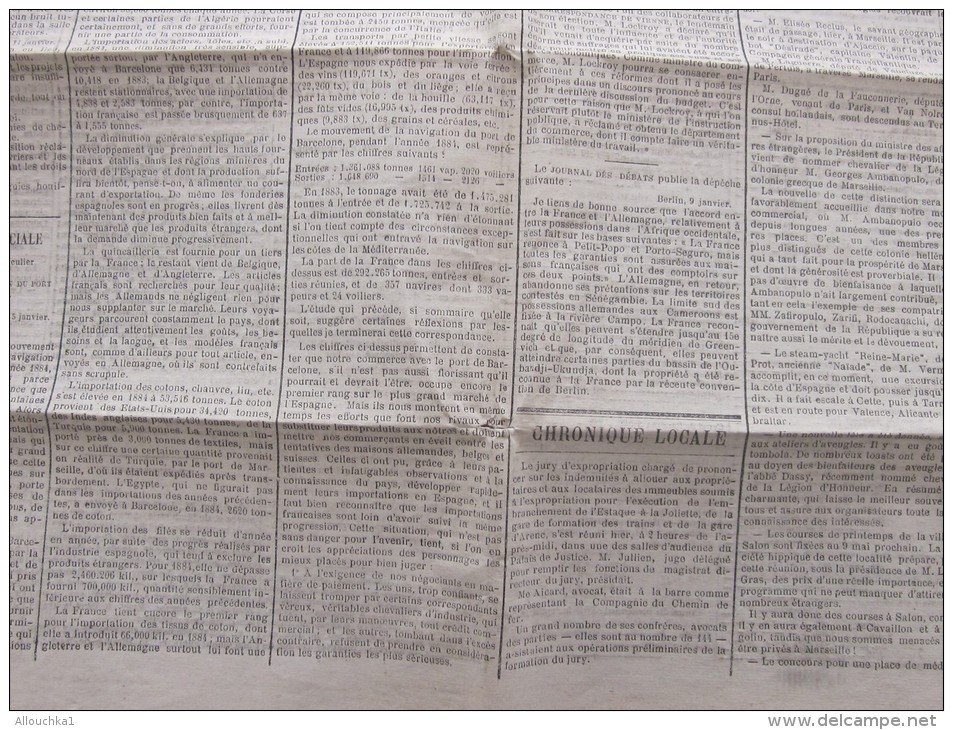 portée surtout par l'Angleterre, qui n'a en-
voyé à Barcelone que 6,331 tonnes contre
6,418 en 1883; la Belgique et l'Allemagne
restent stationnaires, avec une importation de
4,838 et 2,583 tonnes, par contre, l'importa-
tion française est passée brusquement de 637
à 1,555 tonnes.
La diminution générale s'explique par le
développement que prennent les hauts four-
neaux établis dans les régions minières du
nord de l'Espagne et dont la production suf-
fira bientôt, pense-t-on, à alimenter un cou-
rant d'exportation. De même les fonderies
espagnoles sont en progrès; elles livrent dès
maintenant des produits bien faits et à meil-
leur marché que les produits étrangers, dont
la demande diminue progressivement.
La quincaillerie est fournie pour un tiers
par la France; le restant vient de Belgique,
d'Allemagne et d'Angleterre. Les articles
français sont recherchés pour leur qualité;
mais les Allemands ne négligent rien pour
nous supplanter sur le marché. Leurs voya-
geurs parcourent constamment le pays, dont
ils étudient attentivement les goûts, les be-
soins et la langue, et les modèles français
sont, comme d'ailleurs pour tout article, en-
voyés en Allemagne, où ils sont contrefaits
sans scrupule.
L'importation des cotons, chanvre, lin, etc.
s'est élevée en 1884 à 53,516 tonnes. Le coton
provient des Etats-Unis pour 34,420 tonnes,
des Indes anglaises pour 5,430 tonnes, de la
Turquie pour 5,700 tonnes. La France a im-
porté près de 3,000 tonnes de textiles, mais
sur ce chiffre une certaine quantité provenait
en réalité de Turquie, par le port de Mar-
seille, d'où ils étaient expédiés après trans-
bordement. L'Egypte, qui ne figurait pas
dans les importations des années précéden-
tes, a envoyé à Barcelone, en 1884, 2620 ton-
nes de coton.
L'importation des filés se réduit d'année
en année, par suite des progrès réalisés par
l'industrie espagnole, qui tend à exclure les
produits étrangers. Pour 1884, elle ne dépasse
pas 2,400.206 kil., sur lesquels la France a
fourni 700,000 kil., quantité sensiblement in-
férieure aux chiffres des années précédentes.
La France tient encore le premier rang
pour l'importation des tissus de coton, dont
elle a introduit 66,000 kil. en 1884, mais l'An-
gleterre et l'Allemagne surtout lui font une
France et à 119,866 tonnes pour l'import
L'Espagne nous expédie par la voie ferrée :
des vins (119,671 tx), des oranges et citrons
(22,200 tx), du bois et du liège; elle a reçu
par la même voie : de la houille (63,117 tx)
des fûts vides (16,995 tx), des produits chimi-
ques (9,883 tx), des grains et céréales, etc.
Le mouvement de la navigation du port de
Barcelone, pendant l'année 1884, est repré-
senté par les chiffres suivants :
Entrées : 1.361.088 tonnes 1461 vap. 2020 voiliers
Sorties : 1.648 690 — 1514 — 2126 —
En 1883, le tonnage avait été de 1.475.281
tonnes à l'entrée et de 1.725.742 à la sortie.
La diminution constatée n'a rien d'étonnant
si l'on tient compte des circonstances excep-
tionnelles qui ont entravé la navigation sur
les côtes de la Méditerranée.
La part de la France dans les chiffres ci-
dessus est de 292.265 tonnes, entrées et sor-
ties réunies, et de 357 navires dont 333 va-
peurs et 24 voiliers.
L'étude qui précède, si sommaire qu'elle
soit, suggère certaines réflexions par les-
quelles je terminerai cette correspondance.
Les chiffres ci-dessus permettent de consta-
ter que notre commerce avec le port de Bar-
celone, s'il n'est pas aussi florissant qu'il
pourrait et devrait l'être, occupe encore le
premier rang sur le plus grand marché de
l'Espagne. Mais ils nous montrent en même
temps les efforts que font nos rivaux pour
substituer leurs produits aux nôtres et doivent
mettre nos commerçants en éveil contre les
tentatives des maisons allemandes, belges et
suisses. Celles ci ont pu, grâce à leurs pa-
tientes et infatigables observations et à la
connaissance du pays, développer rapide-
ment leurs importations en Espagne, et il
faut bien reconnaître que les importations
françaises sont loin d'avoir suivi la même
progression. Cette situation, qui n'est pas
sans danger pour l'avenir, tient, si l'on en
croit les appréciations des personnages les
mieux placés pour bien juger :
1° A l'exigence de nos négociants en ma-
tière de paiement. Les uns, trop confiants, se
laissent tromper par certains correspondants
véreux, véritables chevaliers d'industrie, qui
tuent, par leurs manœuvres, tout crédit com-
mercial; et les autres, tombant dans l'excès
contraire, refusent de prendre en considéra-
tion les garanties les plus sérieuses.
merce, M. Lockroy pourra se consacrer en-
tièrement à ces réformes dont il a posé les
principes dans un discours prononcé au cours
de la dernière discussion du budget. C'est
pour cette raison que M. Lockroy, à qui l'on
offrait plutôt le ministère de l'instruction
publique, a réclamé et obtenu le département
du commerce, dont il compte faire un vérita-
ble ministère du travail. »
Le JOURNAL DES DÉBATS publie la dépêche
suivante :
Berlin, 9 janvier.
Je tiens de bonne source que l'accord en-
tre la France et l'Allemagne, relativement à
leurs possessions dans l'Afrique occidentale,
s'est fait sur les bases suivantes : « La France
renonce à Petit-Popo et Porto-Seguro, mais
toutes les garanties sont assurées aux mai-
sons françaises qui ont des comptoirs sur
ces deux points. L'Allemagne, en retour,
abandonne ses prétentions sur les territoires
contestés en Sénégambie. La limite sud des
possessions allemandes aux Cameroons est
fixée à la rivière Campo. La France recon-
naît qu'elles peuvent s'étendre jusqu'au 15e
degré de longitude du méridien de Green-
wich et que, par conséquent, elles peuvent
atteindre certaines parties du bassin de l'Ou-
bandji-Ukundja, dont la propriété a été re-
connue à la France par la récente conven-
tion de Berlin.
CHRONIQUE LOCALE
Le jury d'expropriation chargé de pronon-
cer sur les indemnités à allouer aux proprié-
taires et aux locataires des immeubles soumis
à l'expropriation pour l'exécution de l'em-
branchement de l'Estaque à la Joliette, de la
gare de formation des trains et de la gare
d'Arenc, s'est réuni hier, à 2 heures de l'a-
près-midi, dans une des salles d'audience du
Palais de Justice. M. Jullien, juge délégué
pour remplir les fonctions de magistrat di-
recteur du jury, présidait.
Me Aicard, avocat, était à la barre comme
représentant la Compagnie du Chemin de
fer.
Un grand nombre de ses confrères, avocats
des parties — elles sont au nombre de 141 —
assistaient aux opérations préliminaires de la
formation du jury.
— M. Elisée Reclus, le savant géographe
Paris.
M. Dugué de la Fauconnerie, député
l'Orne, venant de Paris, et Van
consul hollandais, sont descendus au Ter
nus-Hôtel.
— Sur la proposition du ministre des af
res étrangères, le Président de la Républi
vient de nommer chevalier de la Lég
d'honneur M. Georges Ambanopulo, de
colonie grecque de Marseille.
La nouvelle de cette distinction sera
favorablement accueillie dans notre mo
commercial, où M. Ambanopulo occ
depuis longues années, une des pre
res places. C'est un des membres
plus distingués de cette colonie hellén
qui a tant fait pour la prospérité de Mars
et dont la générosité est proverbiale. Il
pas d'œuvre de bienfaisance à laquell
Ambanopulo n'ait largement contribué,
tant en cela l'exemple de ses compatri
MM. Zafiropulo, Zarifi, Rodocanachi, do
gouvernement de la République a su re
naître aussi le mérite et le dévouement.
— Le steam-yacht "Reine-Marie", de
Prot, ancienne "Naïade", de M. Verm
accomplit, en ce moment, une excursio
la côte d'Espagne et doit pousser jusqu
diz. Il a fait escale à Cette, puis à Tarr
et est en route pour Valence, Alicante
braltar.
aux ateliers d'aveugles. Il y a eu go
tombola. De nombreux toasts ont été
au doyen des bienfaiteurs des aveugle
l'abbé Dassy, récemment nommé chev
de la Légion d'Honneur. En résumé
charmante, qui laisse le meilleur souve
tous et assure aux organisateurs toute la
connaissance des intéressés.
— Les courses de printemps de la vill
Salon sont fixées au 9 mai prochain. La
ciété hippique de cette localité prépare,
cette réunion, sous la présidence de M. I
Gras, des prix d'une réelle importance, e
programme qui ne peut manquer d'attirer
nombreux étrangers.
Il y aura donc des courses à Salon, con
il y en aura également à Cavaillon et à
golin, tandis que nous sommes menacés
être privés à Marseille !
— Le concours pour une place de méd
CIALE
Allouchka1
www.delcampe.net